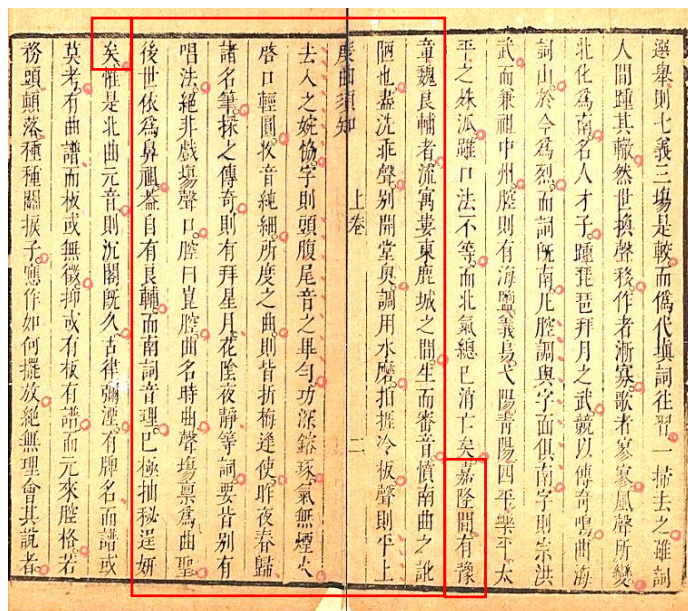 選舉則七義三場是較而僞代塡詞往習一掃去之雖詞
人間踵其轍然世換聲移作者漸寡歌者寥寥風聲所變
北化爲南名人才子踵琵琶拜月之武競以傳奇鳴曲海
詞山於今爲烈而詞旣南凡腔調與字面俱南字則宗洪
武而兼祖中州腔則有海鹽義烏弋陽靑陽四平樂平太
平之殊派雖口法不等而北氣總已消亡矣嘉隆間有豫
章魏良輔者流寓婁東鹿城之間生而審音憤南曲之訛
陋也盡洗乖聲別開堂奧調用水磨拍捱冷板聲則平上
度曲須知 上卷 二
去入之婉協字則頭腹尾音之畢勻功深鎔琢氣無煙火
啓口輕圓收音純細所度之曲則皆折梅逢使昨夜春歸
諸名筆採之傳奇則有拜星月花陰夜靜等詞要皆別有
唱法絕非戲場聲口腔曰崑腔曲名時曲聲場禀爲曲聖
後世依爲鼻祖蓋自有良輔而南詞音理已極抽秘逞妍
矣惟是北曲元音則沉閣旣久古律彌湮有牌名而譜或
莫考有曲譜而板或無徵抑或有板有譜而元來腔格若
務頭顛落種種關捩子應作如何擺放絕無理會其說者